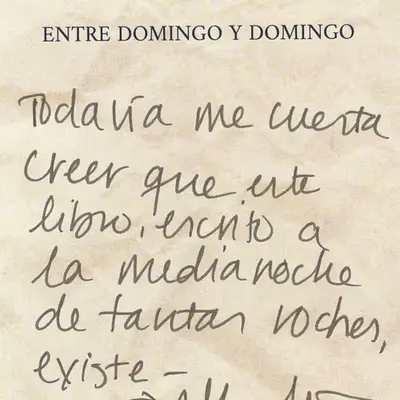 ENTRE DOMINGO Y DOMINGO
Todavía me cuesta
creer que este
libro, escrito a
la medianoche
de tantas noches,
existe –